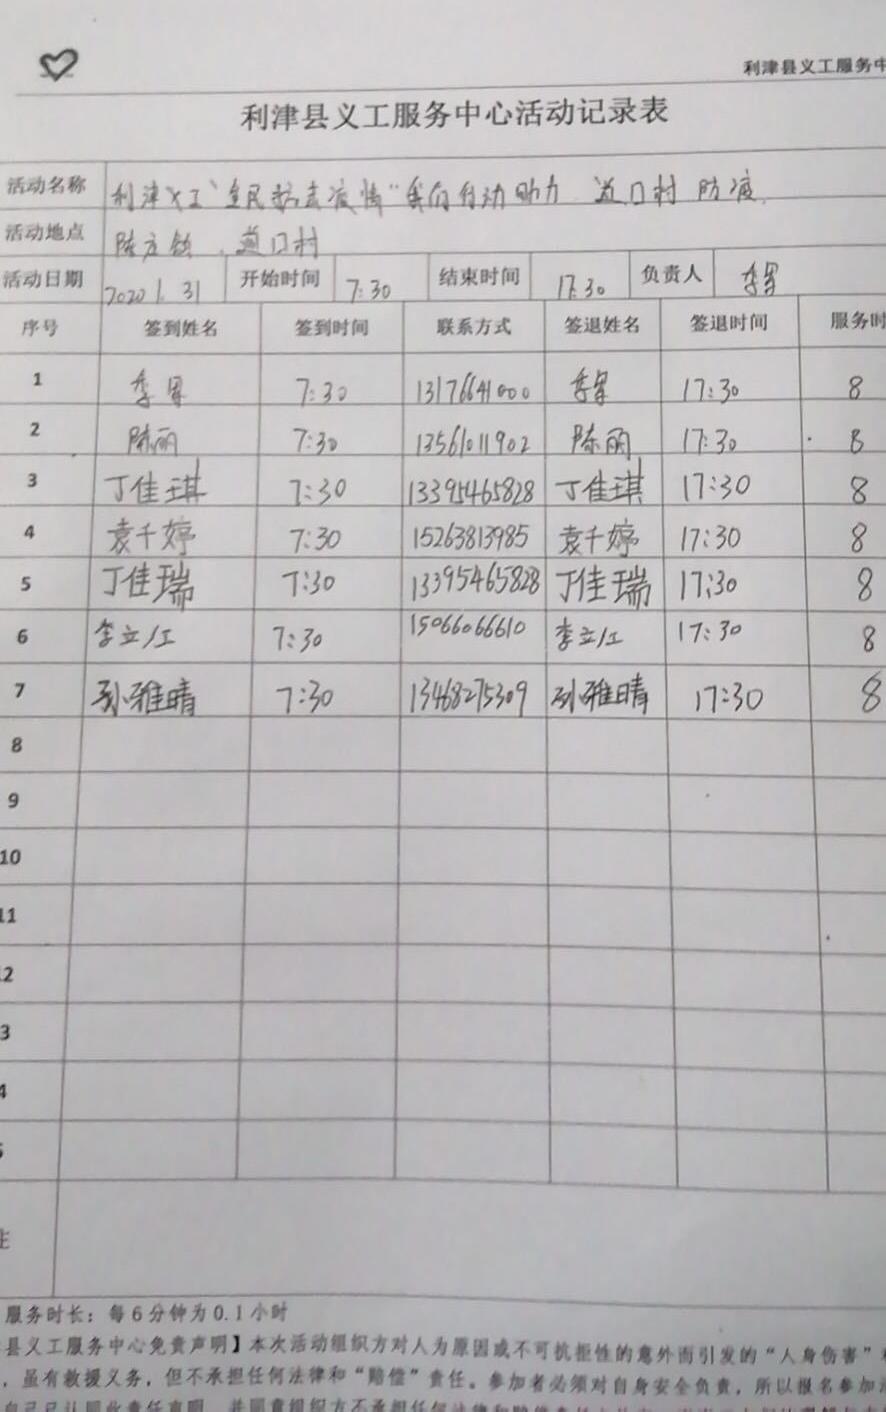 利津县义工服务中
利津县义工服务中心活动记录表
活动名称 利津义工"全民抗击疫情"我们行动助力 道口村 防疫
活动地点 陈庄镇、道口村
活动日期 2020 1. 31 开始时间 7:30 结束时间 17:30 负责人
序号 签到姓名 签到时间 联系方式 签退姓名 签退时间 服务时
1 7:30 13176641000 17:30 8
2 陈丽 7:30 13561011902 陈丽 17:30 8
3 丁佳琪 7:30 13395465828 丁佳琪 17:30 8
4 袁千婷 7:30 15263813985 袁千婷 17:30 8
5 丁佳瑞 7:30 13395465828 丁佳瑞 17:30 8
6 李立江 7:30 15066066610 李立江 17:30 8
7 孙雅晴 7:30 13468275309 孙雅晴 17:30 8
8
9
10
11
2
3
4
5
注
服务时长：每6分钟为0.1小时
县义工服务中心免责声明】本次活动组织方对人为原因或不可抗拒性的意外而引发的“人身伤害”
，虽有救援义务，但不承担任何法律和“赔偿”责任。参加者必须对自身安全负责，所以报名参加
自己已认同此责任声明，并同意组织方不承担任何